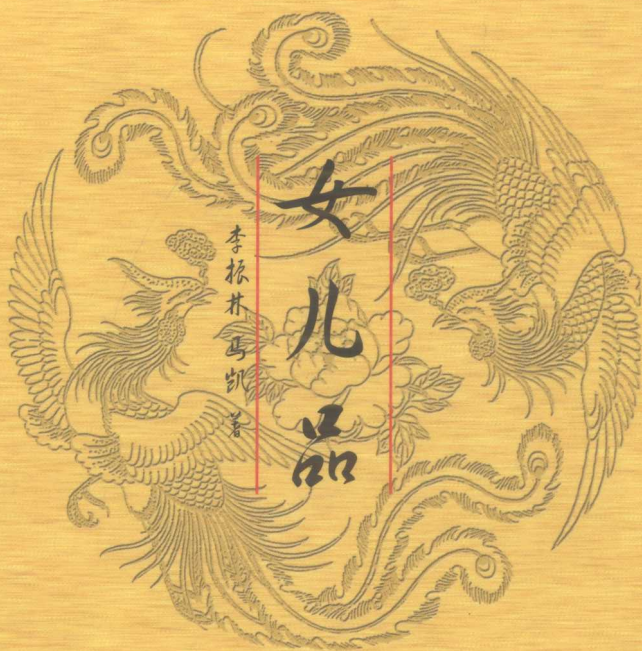 女儿品
李振林 马凯 著